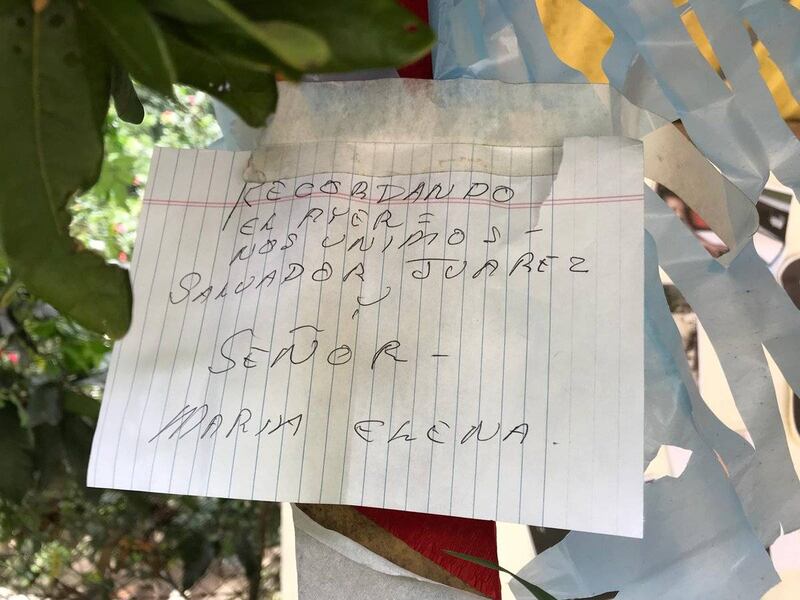 RECORDANDO
EL AYER =
NOS UNIMOS -
SALVADOR JUAREZ
y
SEÑOR -
MARIA ELENA.